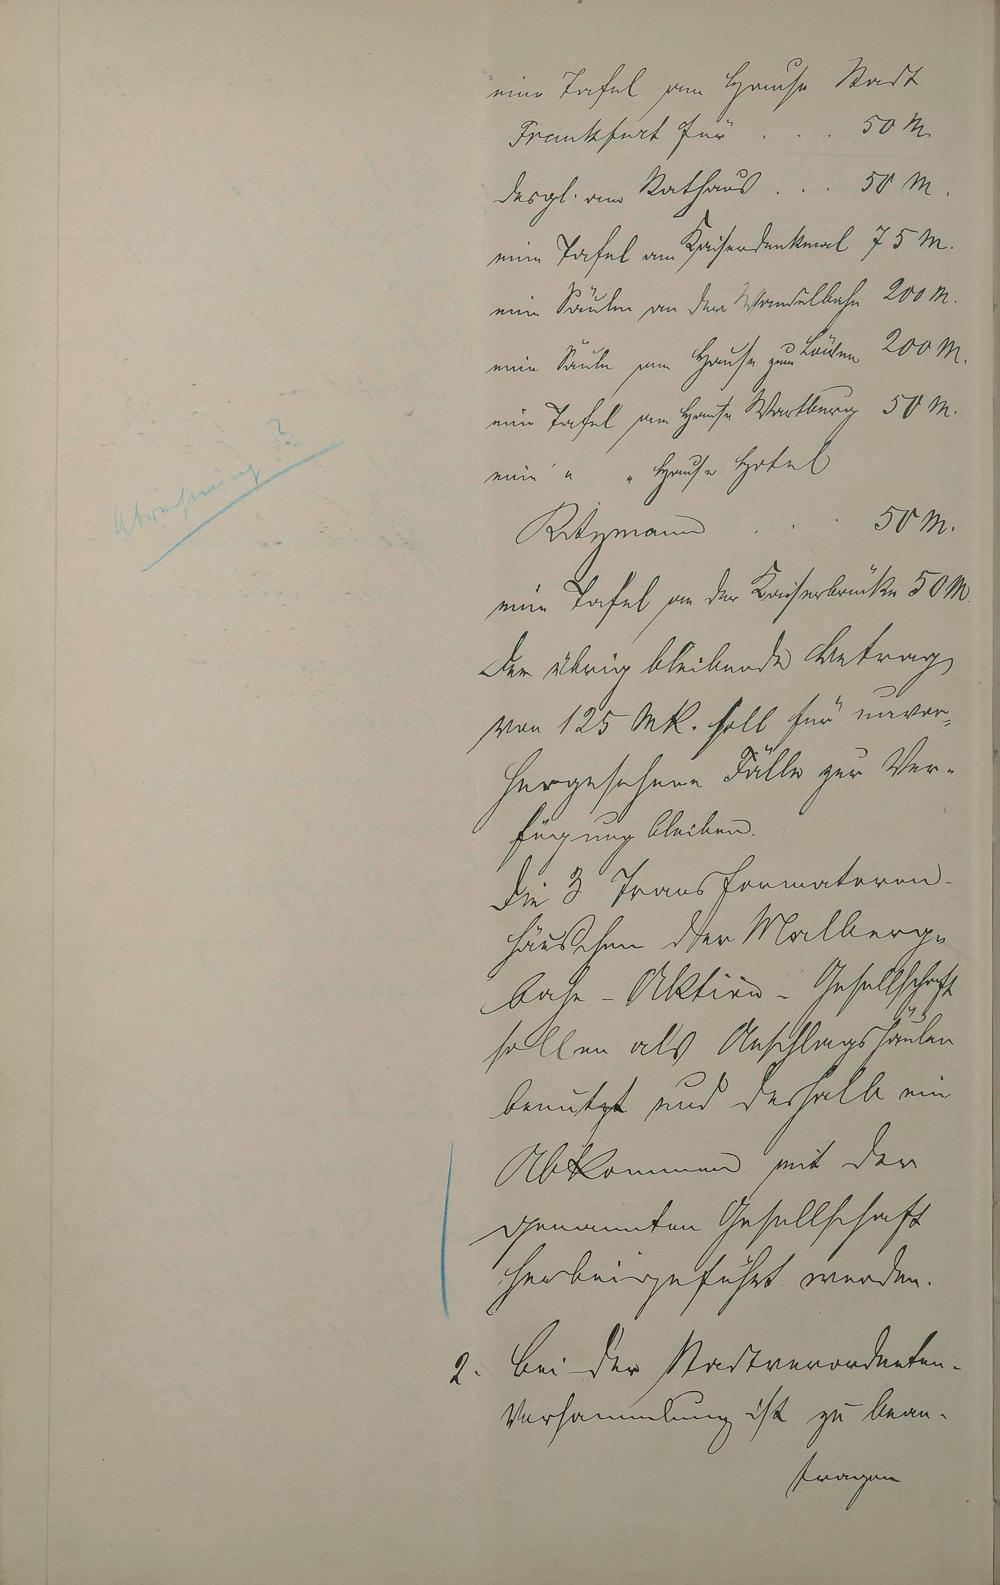 eine Tafel am Hause Stadt
Frankfurt für . . . 50 M.
desgl. am Rathaus . . . 50 M.
eine Tafel am Kaiserdenkmal 75 M.
eine Säule an der Wandelbahn 200 M.
eine Säule am Hause zum Löwen 200 M.
eine Tafel am Hause Wartburg 50 M.
eine " " Hause Hotel
Ritzmann . . . 50 M.
eine Tafel an der Kaiserbrücke 50 M
Abrechnung?
Der übrig bleibende Betrag
von 125 MK. soll für unvor-
hergesehene Fälle zur Ver-
fügung bleiben.
Die 3 Transformatoren-
häuschen der Malberg-
bahn - Aktien - Gesellschaft
sollen als Anschlagsäulen
benutzt und deshalb ein
Abkommen mit der
genannten Gesellschaft
herbeigeführt werden.
2. bei der Stadtverordneten-
Versammlung ist zu bean-
tragen